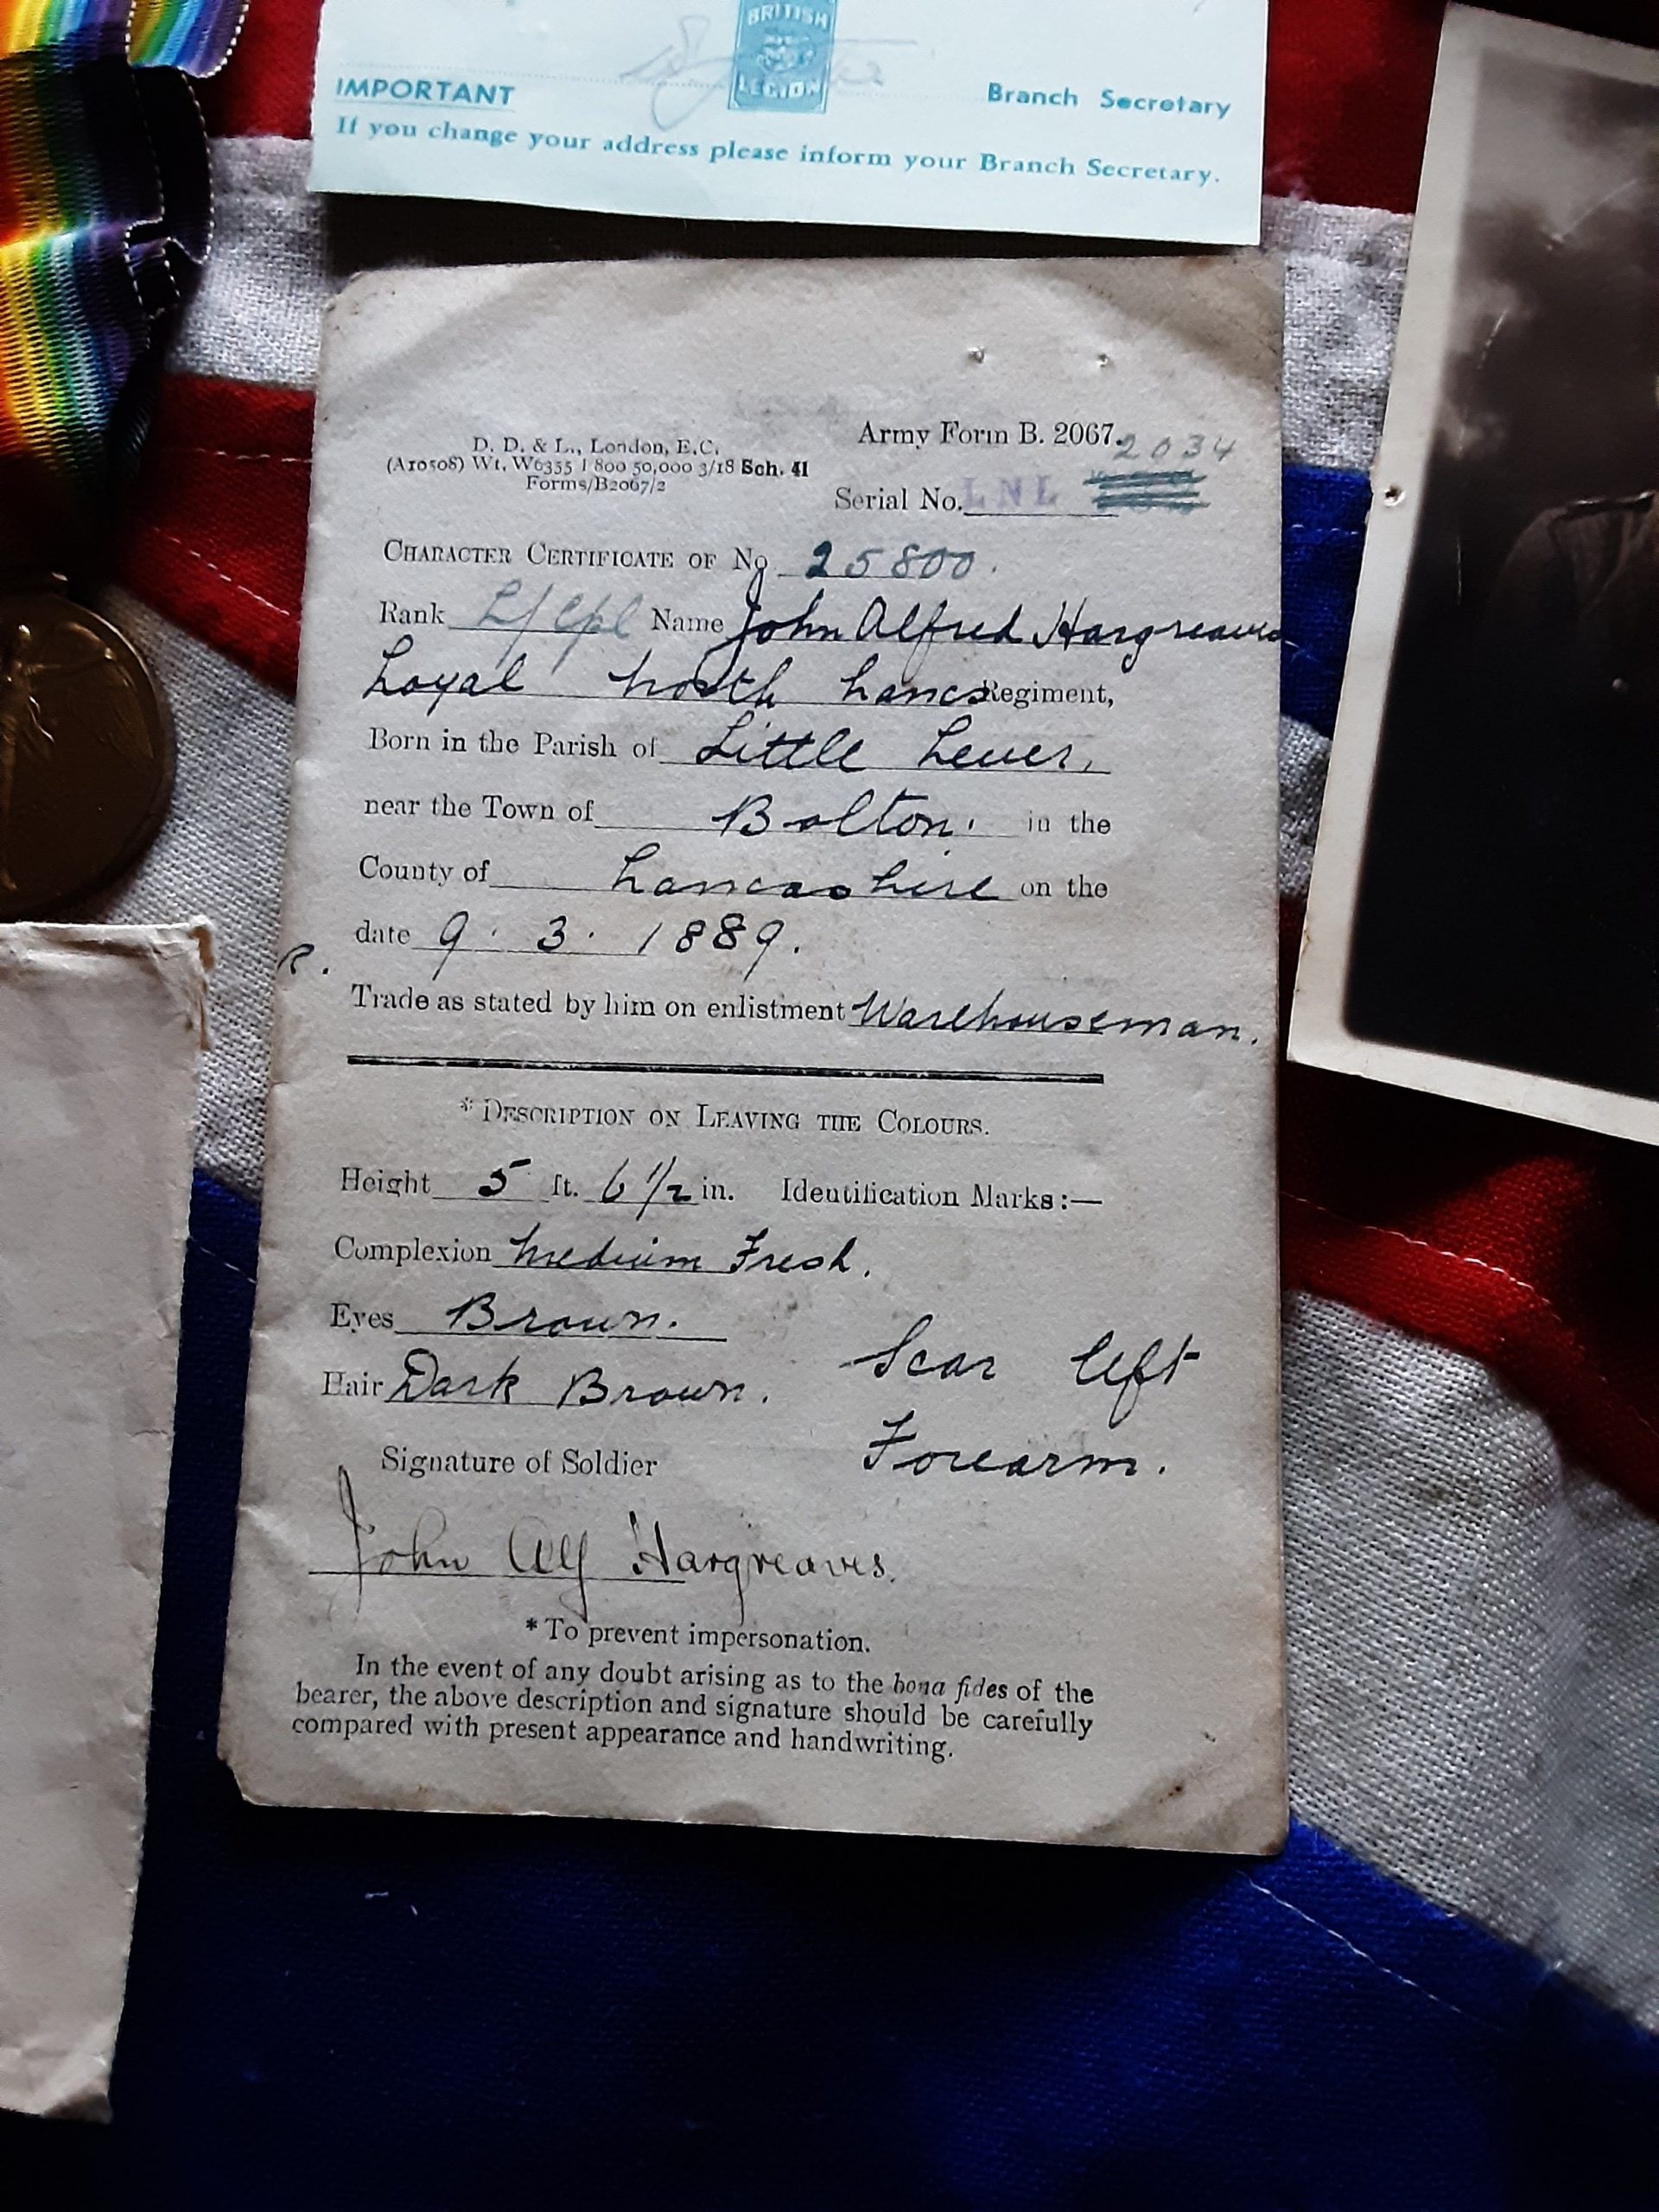 BRITISH
LEGION
IMPORTANT
Branch Secretary
If you change your address please inform your Branch Secretary.
D. D. & L., London, E.C.
(A10508) Wt. W6355 1800 50,000 3/18 Sch. 41
Forms/B2067/2
Army Form B. 2067.
2034
Serial No. LNL
CHARACTER CERTIFICATE OF No 25800.
Rank L/Cpl Name John Alfred Hargreaves
Loyal North Lancs Regiment,
Born in the Parish of Little Lever,
near the Town of Bolton. in the
County of Lancashire on the
date 9. 3. 1889.
R.
Trade as stated by him on enlistment Warehouseman.
* DESCRIPTION ON LEAVING THE COLOURS.
Height 5 ft. 6 1/2 in. Identification Marks:—
Complexion Medium Fresh.
Eyes Brown.
Scar left
Hair Dark Brown.
Forearm.
Signature of Soldier
John Alf Hargreaves.
* To prevent impersonation.
In the event of any doubt arising as to the bona fides of the
bearer, the above description and signature should be carefully
compared with present appearance and handwriting.